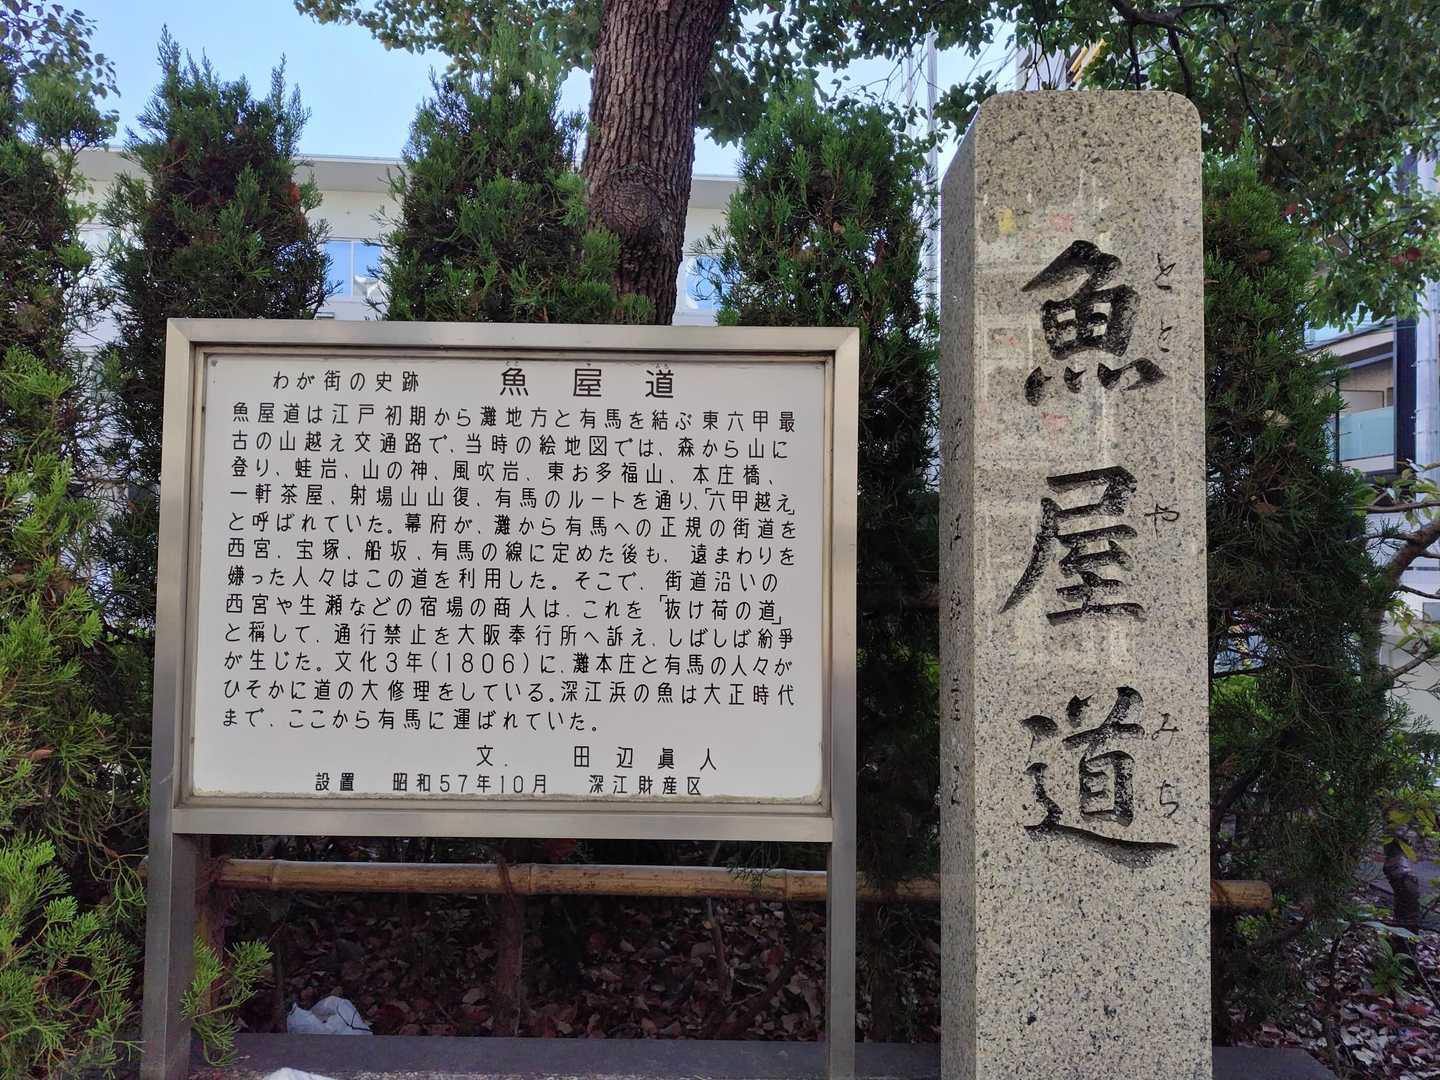 わが街の史跡 魚屋道
魚屋道は江戸初期から灘地方と有馬を結ぶ東六甲最
古の山越え交通路で、当時の絵地図では、森から山に
登り、蛙岩、山の神、風吹岩、東お多福山、本庄橋、
一軒茶屋、射場山山復、有馬のルートを通り、「六甲越え」
と呼ばれていた。幕府が、灘から有馬への正規の街道を
西宮、宝塚、船坂、有馬の線に定めた後も、遠まわりを
嫌った人々はこの道を利用した。そこで、街道沿いの
西宮や生瀬などの宿場の商人は、これを「抜け荷の道」
と稱して、通行禁止を大阪奉行所へ訴え、しばしば紛爭
が生じた。文化3年(1806)に、灘本庄と有馬の人々が
ひそかに道の大修理をしている。深江浜の魚は大正時代
まで、ここから有馬に運ばれていた。
文. 田辺眞人
設置 昭和57年10月 深江財産区
魚屋道
ととやみち